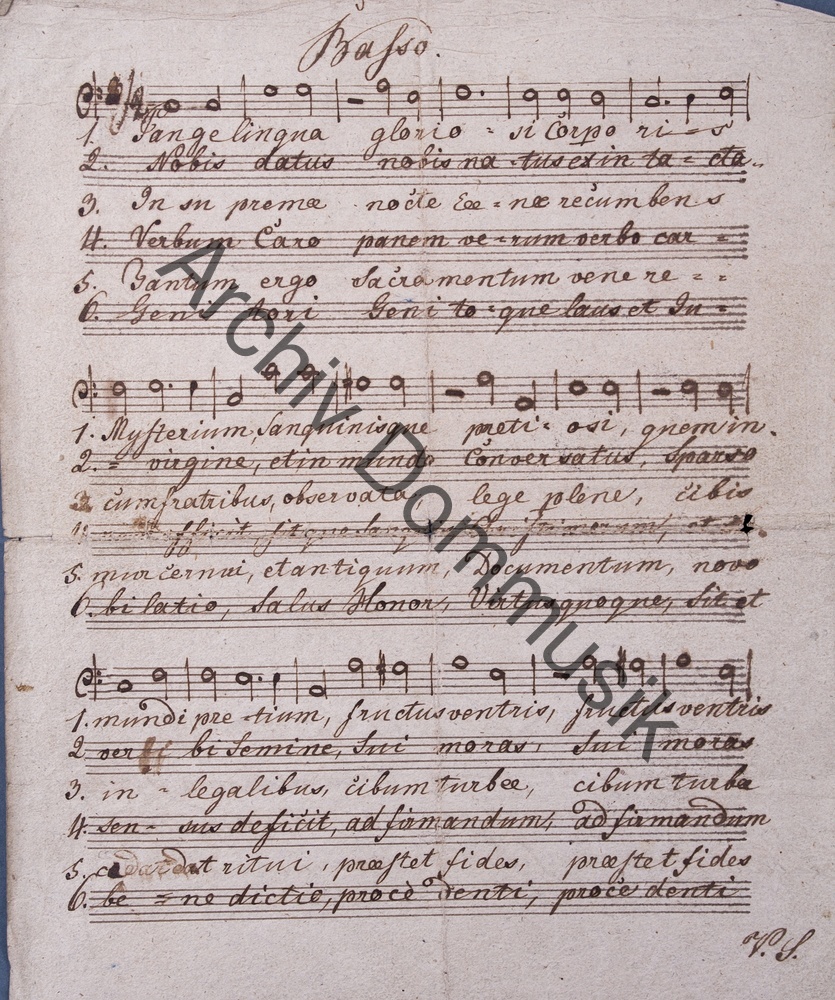 Basso.
1. Pange lingua glorio - si Corpo ri - s
2. Nobis datus nobis na - tus ex in ta - cta
3. In su premæ nocte Cœ - næ recumbens
4. Verbum Caro panem ve - rum verbo car -
5. Tantum ergo Sacramentum vene re - -
6. Geni tori Geni to - que laus et Ju -
1. Mysterium, Sanquinisque preti - osi, quem in
2. - virgine, et in mundo Conversatus, Sparso
3. cum fratribus, observata lege plene, cibis
4. efficit, fitque et
5. mur cernui, et antiquum, Documentum, novo
6. bi latio, Salus Honor, Virtus quoque, Sit et
1. mundi pre - tium, fructus ventris, fructus ventris
2. ver bi Semine, Sui moras, Sui moras
3. in - legalibus, cibum turbæ, cibum turbæ
4. sen - sus deficit, ad firmandum, ad firmandum
5. cedat ritui, præstet fides, præstet fides
6. be - ne dictio, procè denti, procè denti
V. S.
Archiv Dommusik